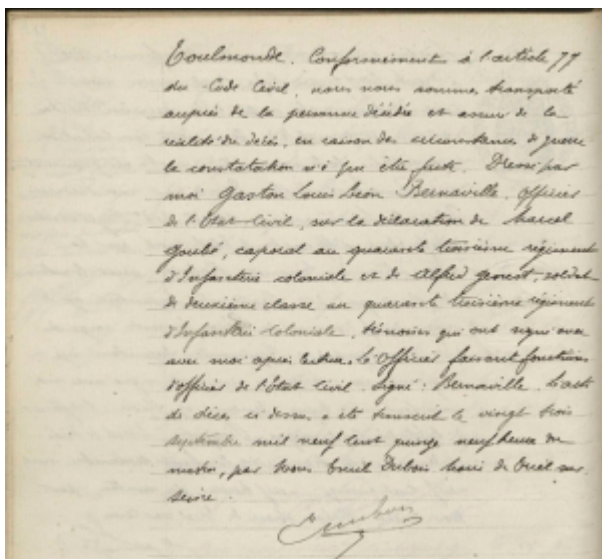 Toulmonde. Conformément à l'article 77
du Code Civil, nous nous sommes transporté
auprès de la personne décédée et assuré de la
réalité du décès, en raison des circonstances de guerre
la constatation n'a pu être faite. Dressé par
moi Gaston Louis Léon Bernaville, Officier
de l'État Civil, sur la déclaration de Marcel
caporal au quarante troisième régiment
d'Infanterie coloniale et de Alfred soldat
de deuxième classe au quarante troisième régiment
d'Infanterie Coloniale, témoins qui ont signé
avec moi après lecture. L'Officier faisant fonctions
d'officier de l'État Civil. Signé: Bernaville. L'acte
de décès ci dessus a été transcrit le vingt trois
septembre mil neuf cent quinze neuf heures du
matin, par Nous Dubois de sur
seine.